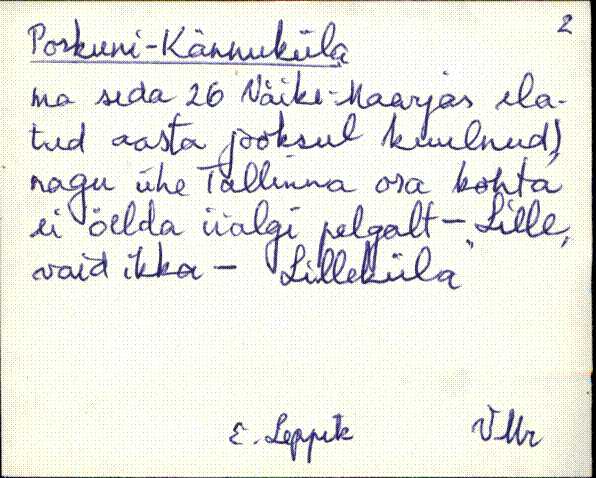 2
Porkuni-Kännuküla
ma seda 26 Väike-Maarjas ela-
tud aasta jooksul kuulnud)
nagu ühe Tallinna osa kohta
ei öelda iialgi pelgalt - Lille,
vaid ikka - Lilleküla"
E. Leppik VMr